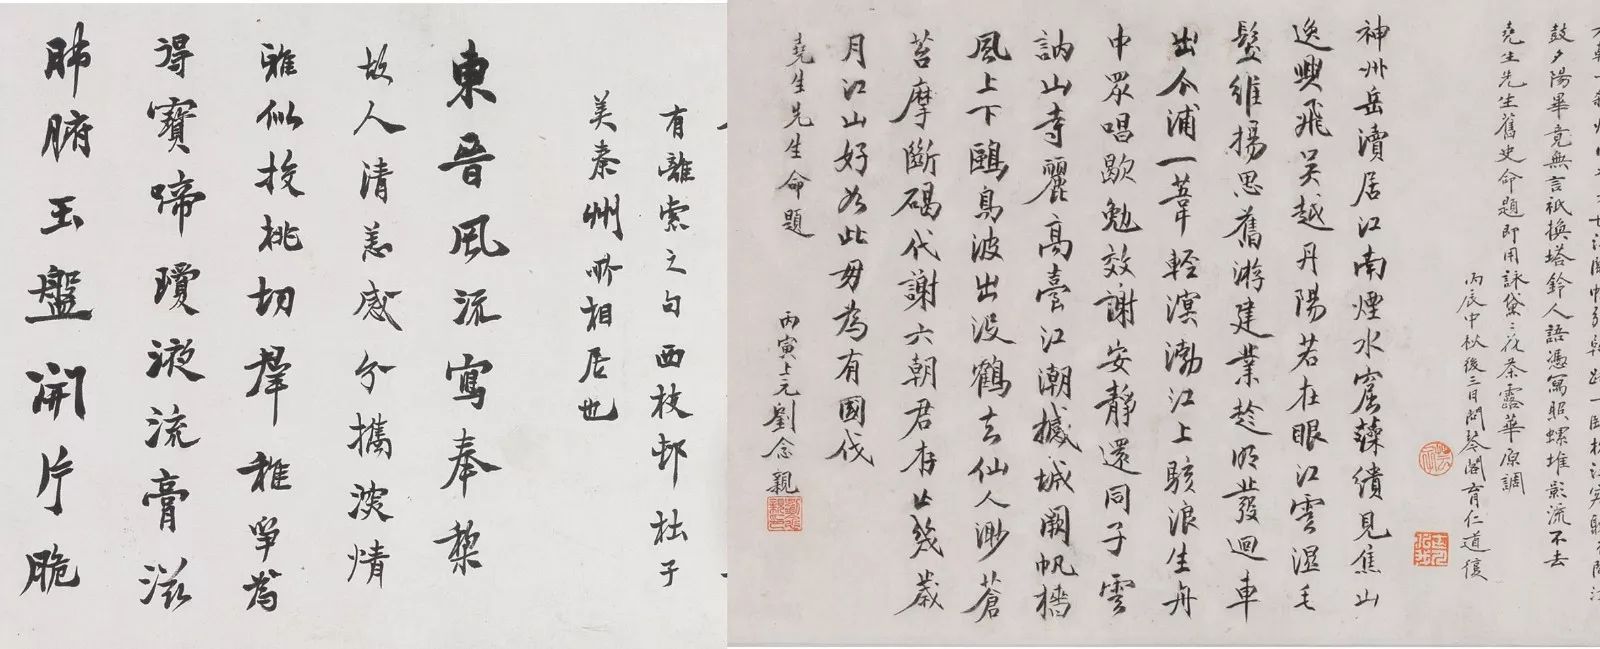 鼓夕陽畢竟無言祇換塔鈴人語憑寫照螺堆影流不去
堯生先生舊史命題即用詠黛三夜茶露華原調
丙辰中秋後三日問琴閣育仁道復
神州岳瀆居江南煙水窟薻繢見焦山
逸興飛吴越丹陽若在眼江雲濕毛
髮維揚思舊游建業趁明發迴車
出公浦一葦輕溟渤江上駭浪生舟
中眾唱歇勉效謝安靜還同子雲
訥山寺麗高臺江潮撼城闕帆檣
風上下鷗鳥波出沒鶴去仙人渺蒼
苔摩斷碣代謝六朝君存亡幾歲
月江山好如此毋為有國伐
堯生先生命題
丙寅上元劉念親
有離索之句西枝邨杜子
美秦州所相居也
東晉風流寫奉槧
故人清恙感分攜淡情
雅似投桃切擇稚爭為
得寶啼瓊液流膏滋
肺腑玉盤開片脆